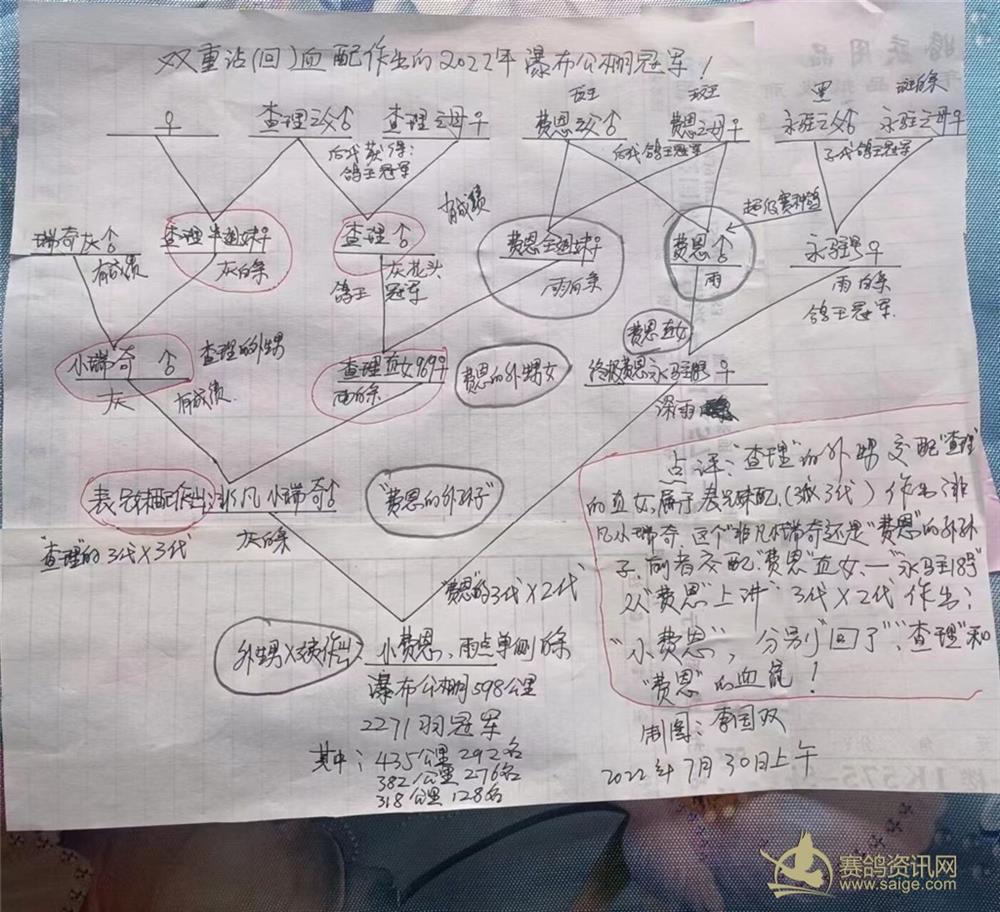 双重沾(回)血配作出的2022年瀑布公棚冠军!
斑王 斑王 黑 斑白条
♀ 查理之父♂ 查理之母♀ 费恩之父♂ 费恩之母♀ 永驻之父♂ 永驻之母♀
后代获得:
鸽王冠军
后代鸽王冠军
子代鸽王冠军
有成绩
超级赛种鸽
瑞奇灰♂ 查理半姐妹♀ 查理♂ 费恩全姐妹♀ 费恩♂ 永驻18号♀
有成绩 灰白条 灰花头 雨白条 雨 雨白条
鸽王 冠军 鸽王冠军
费恩直女
小瑞奇♂ 查理的外甥 查理直女969♀ 费恩的外甥女 终极费恩永驻18号♀
灰 有成绩 雨白条 深雨
表兄妹配作出:非凡小瑞奇♂ "费恩的外孙子"
"查理"的3代X3代" 灰白条
"费恩"的3代X2代"
外甥X姨作出 小费恩、雨点单侧白条
瀑布公棚598公里
2271羽冠军
其中:435公里292名
382公里276名
318公里128名
点评:"查理"的外甥交配"查理"
的直女,属于表兄妹配,(3代X3代)作出"非
凡小瑞奇,这个"非凡小瑞奇还是"费恩"的外孙
子,前者交配"费恩"直女、一"永驻18号
从"费恩"上讲"3代X2代作出:
"小费恩",分别"回了"、"查理"和
"费恩"的血统!
制图:李国双
2022年7月30日上午
赛鸽资讯网
www.saige.com